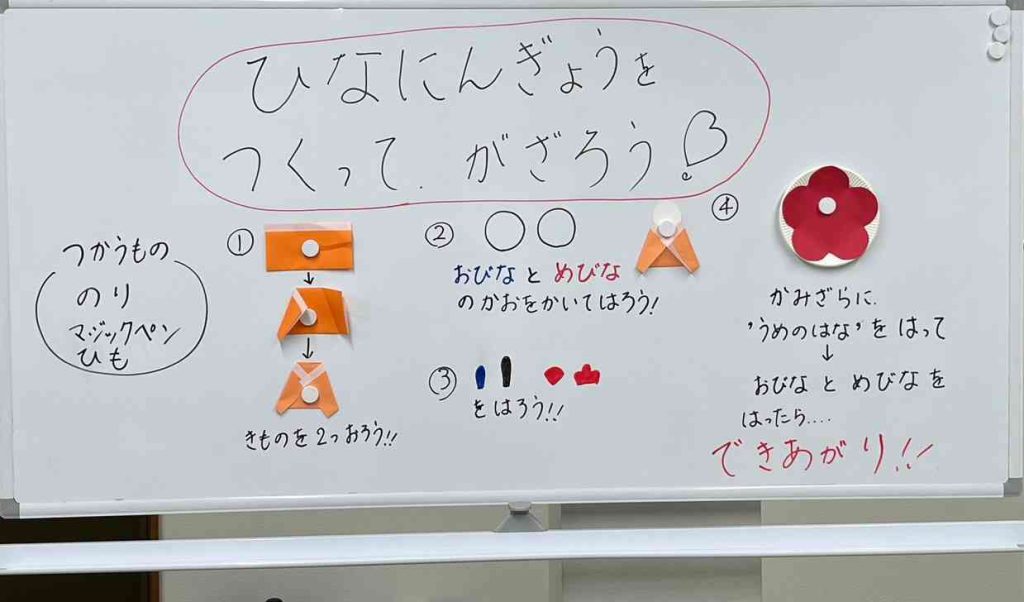 ひなにんぎょうを
つくって.がざろう!
つかうもの
のり
マジックペン
ひも
①
きものを2つおろう!!
②
おびなとめびな
のかおをかいてはろう!
③
をはろう!!
④
かみざらに.
'うめのはな'をはって
↓
おびなとめびなを
はったら....
できあがり!!